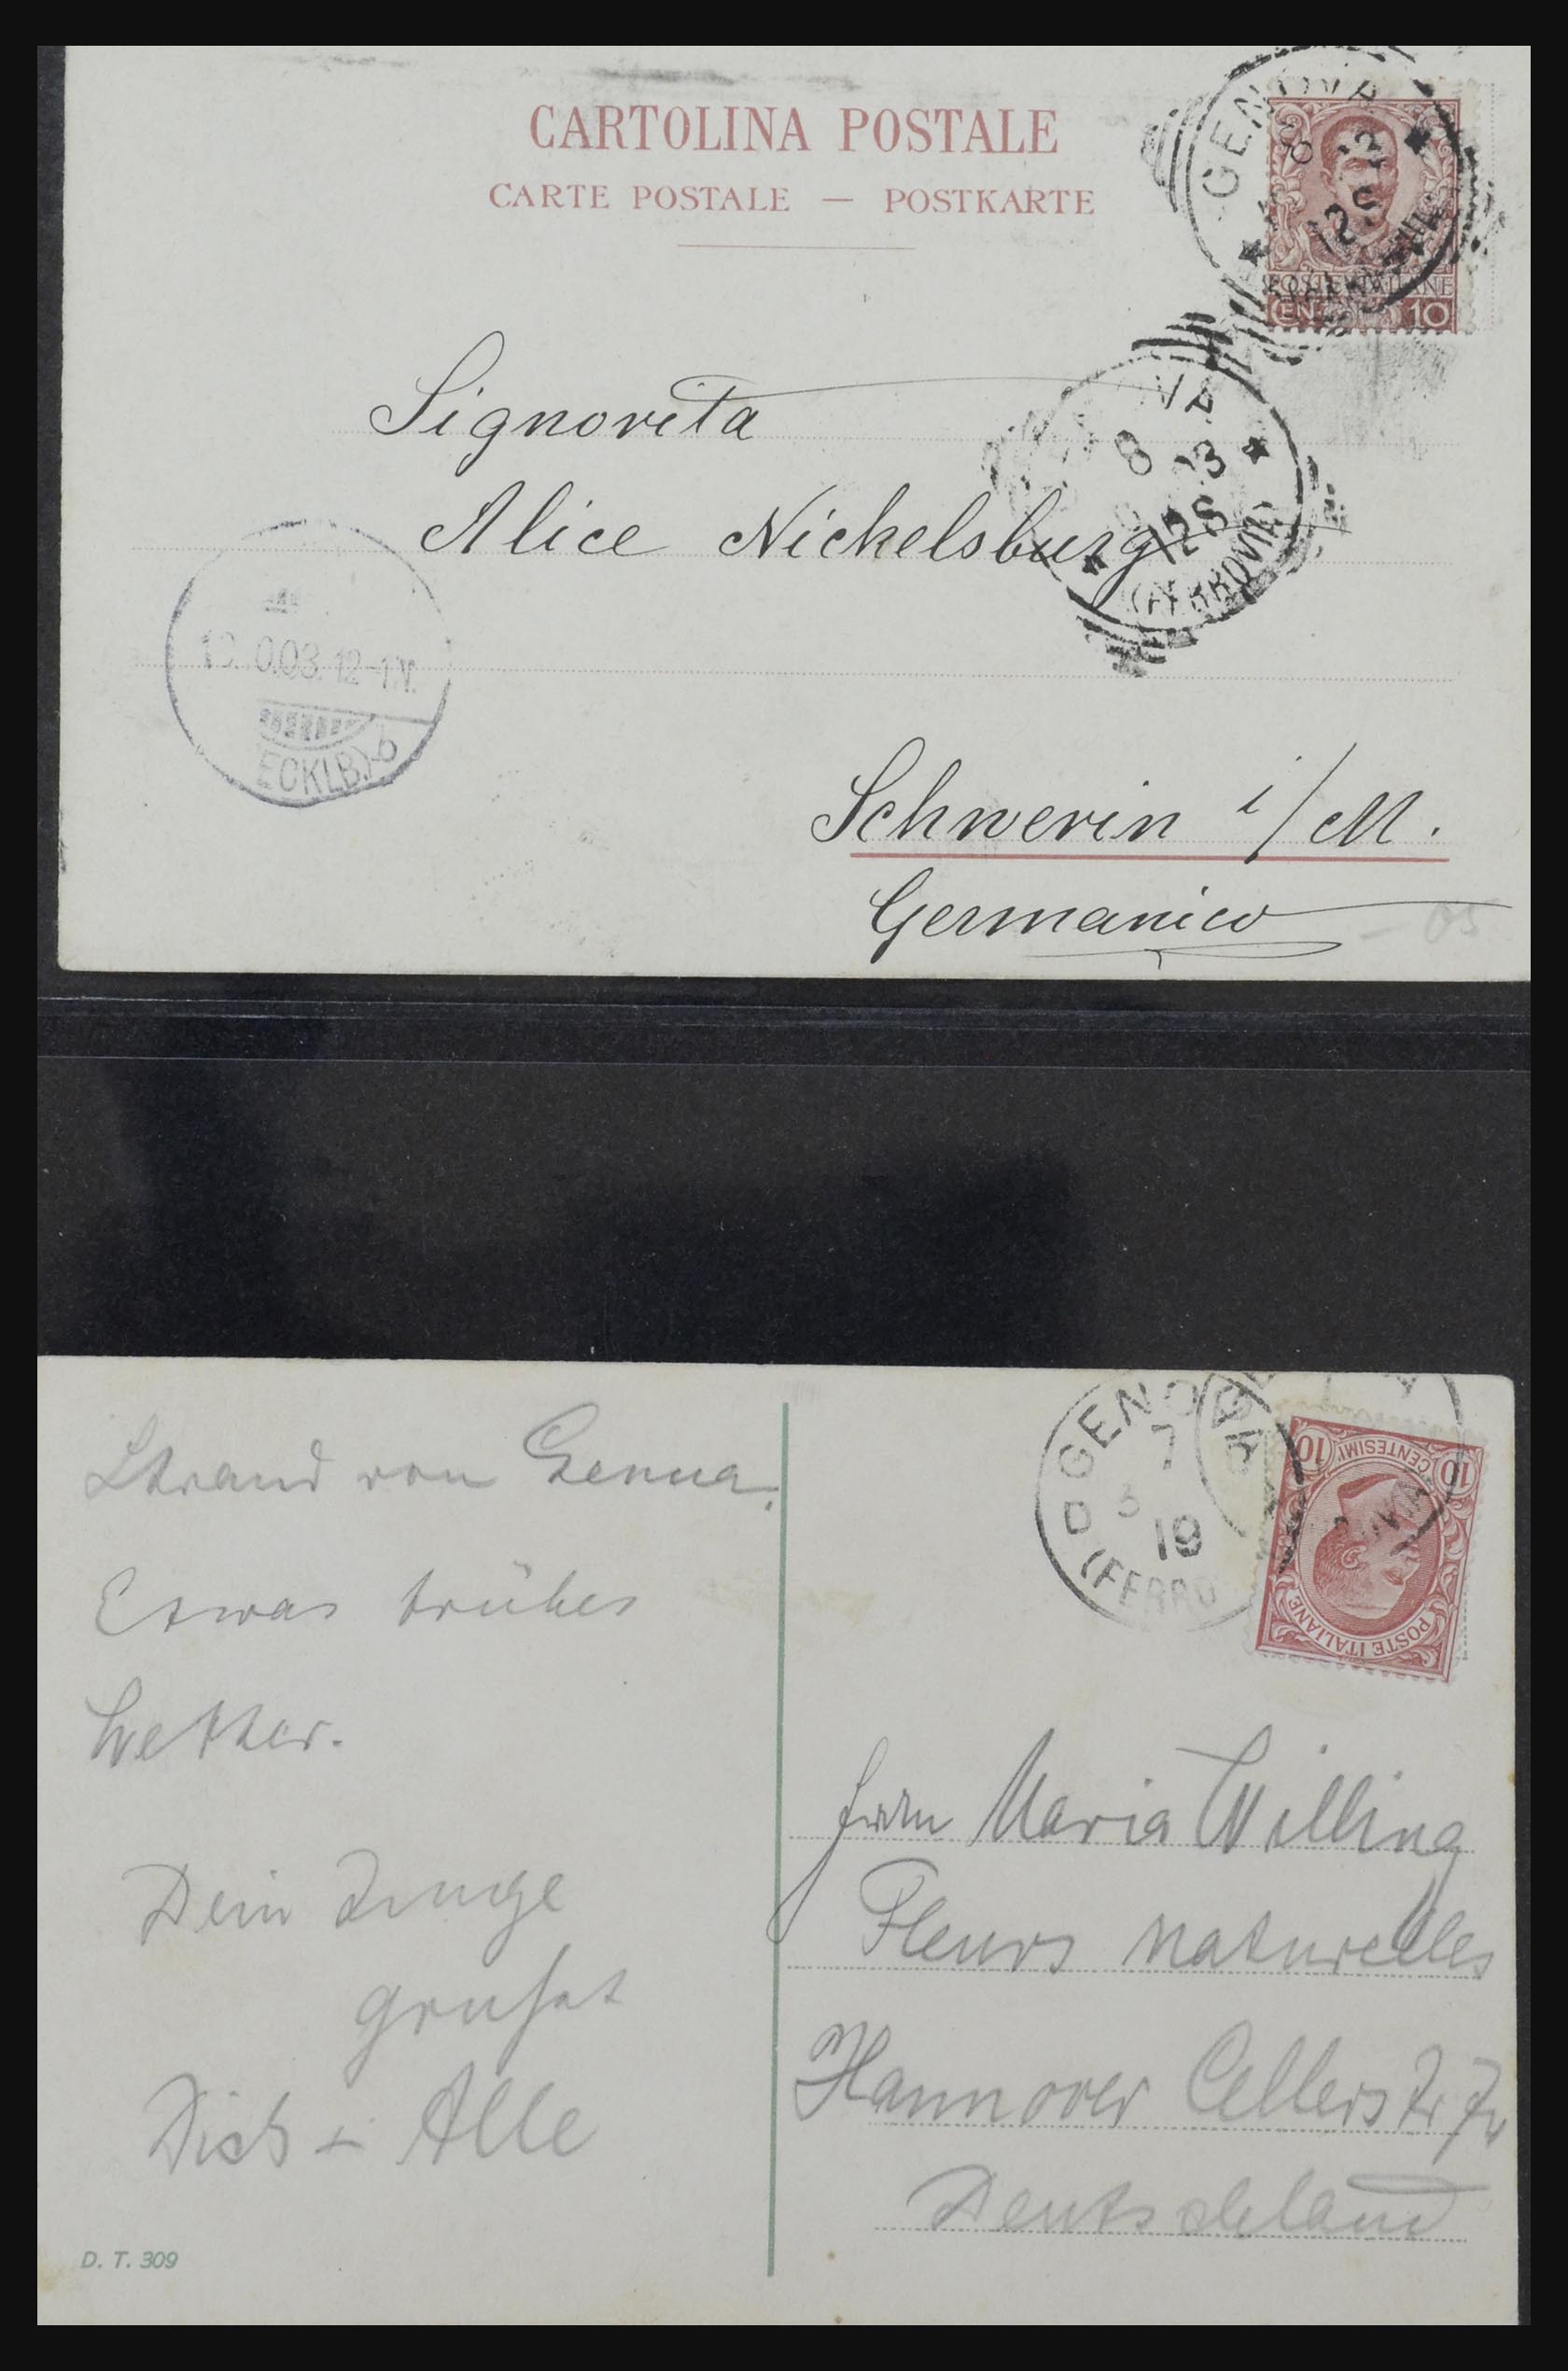 CARTOLINA POSTALE
CARTE POSTALE — POSTKARTE
GENOVA
8 12
12S
POSTE ITALIANE
CENT 10
Signorita
VA
8 03
12S
(FERROVIA)
Alice Nickelsburg
.0.03. 12-1 V.
ECKLB.) b
Schwerin i/M.
Germanico
- 05
GENOVA
7
3
19
D (FERRO
10 CENTESIMI 10
POSTE ITALIANE
Strand von Genua.
Etwas trübes
Wetter.
Dein Junge
grüßt
Dich + Alle
D. T. 309
Frau Maria Willing
Fleurs naturelles
Hannover Cellerstr
Deutschland